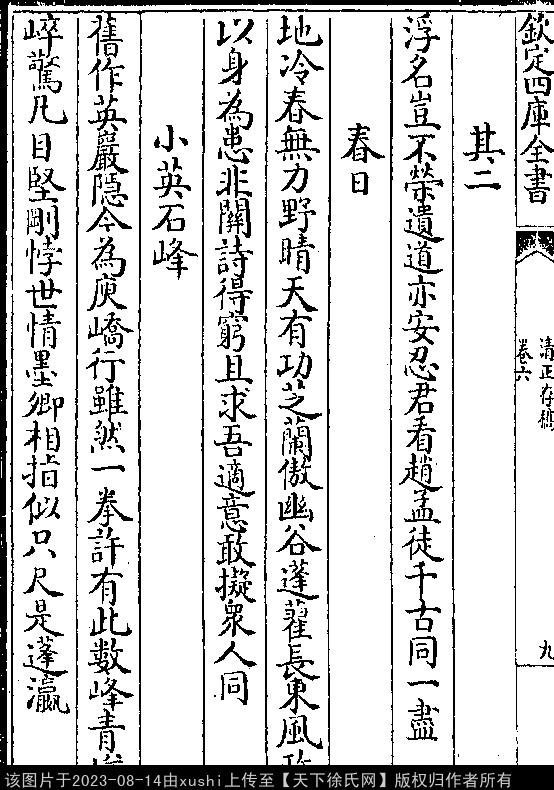 欽定四庫全書
清正存稿
卷六
九
其二
浮名豈不榮遺道亦安忍君看趙孟徒千古同一盡
春日
地冷春無力野晴天有功芝蘭傲幽谷蓬藋長東風
以身為患非關詩得窮且求吾適意敢擬衆人同
小英石峰
舊作英巖隠今為庾嶠行雖然一拳許有此數峰青
崒驚凡目堅剛悖世情墨卿相指似只尺是蓬瀛
该图片于2023-08-14由xushi上传至【天下徐氏网】版权归作者所有